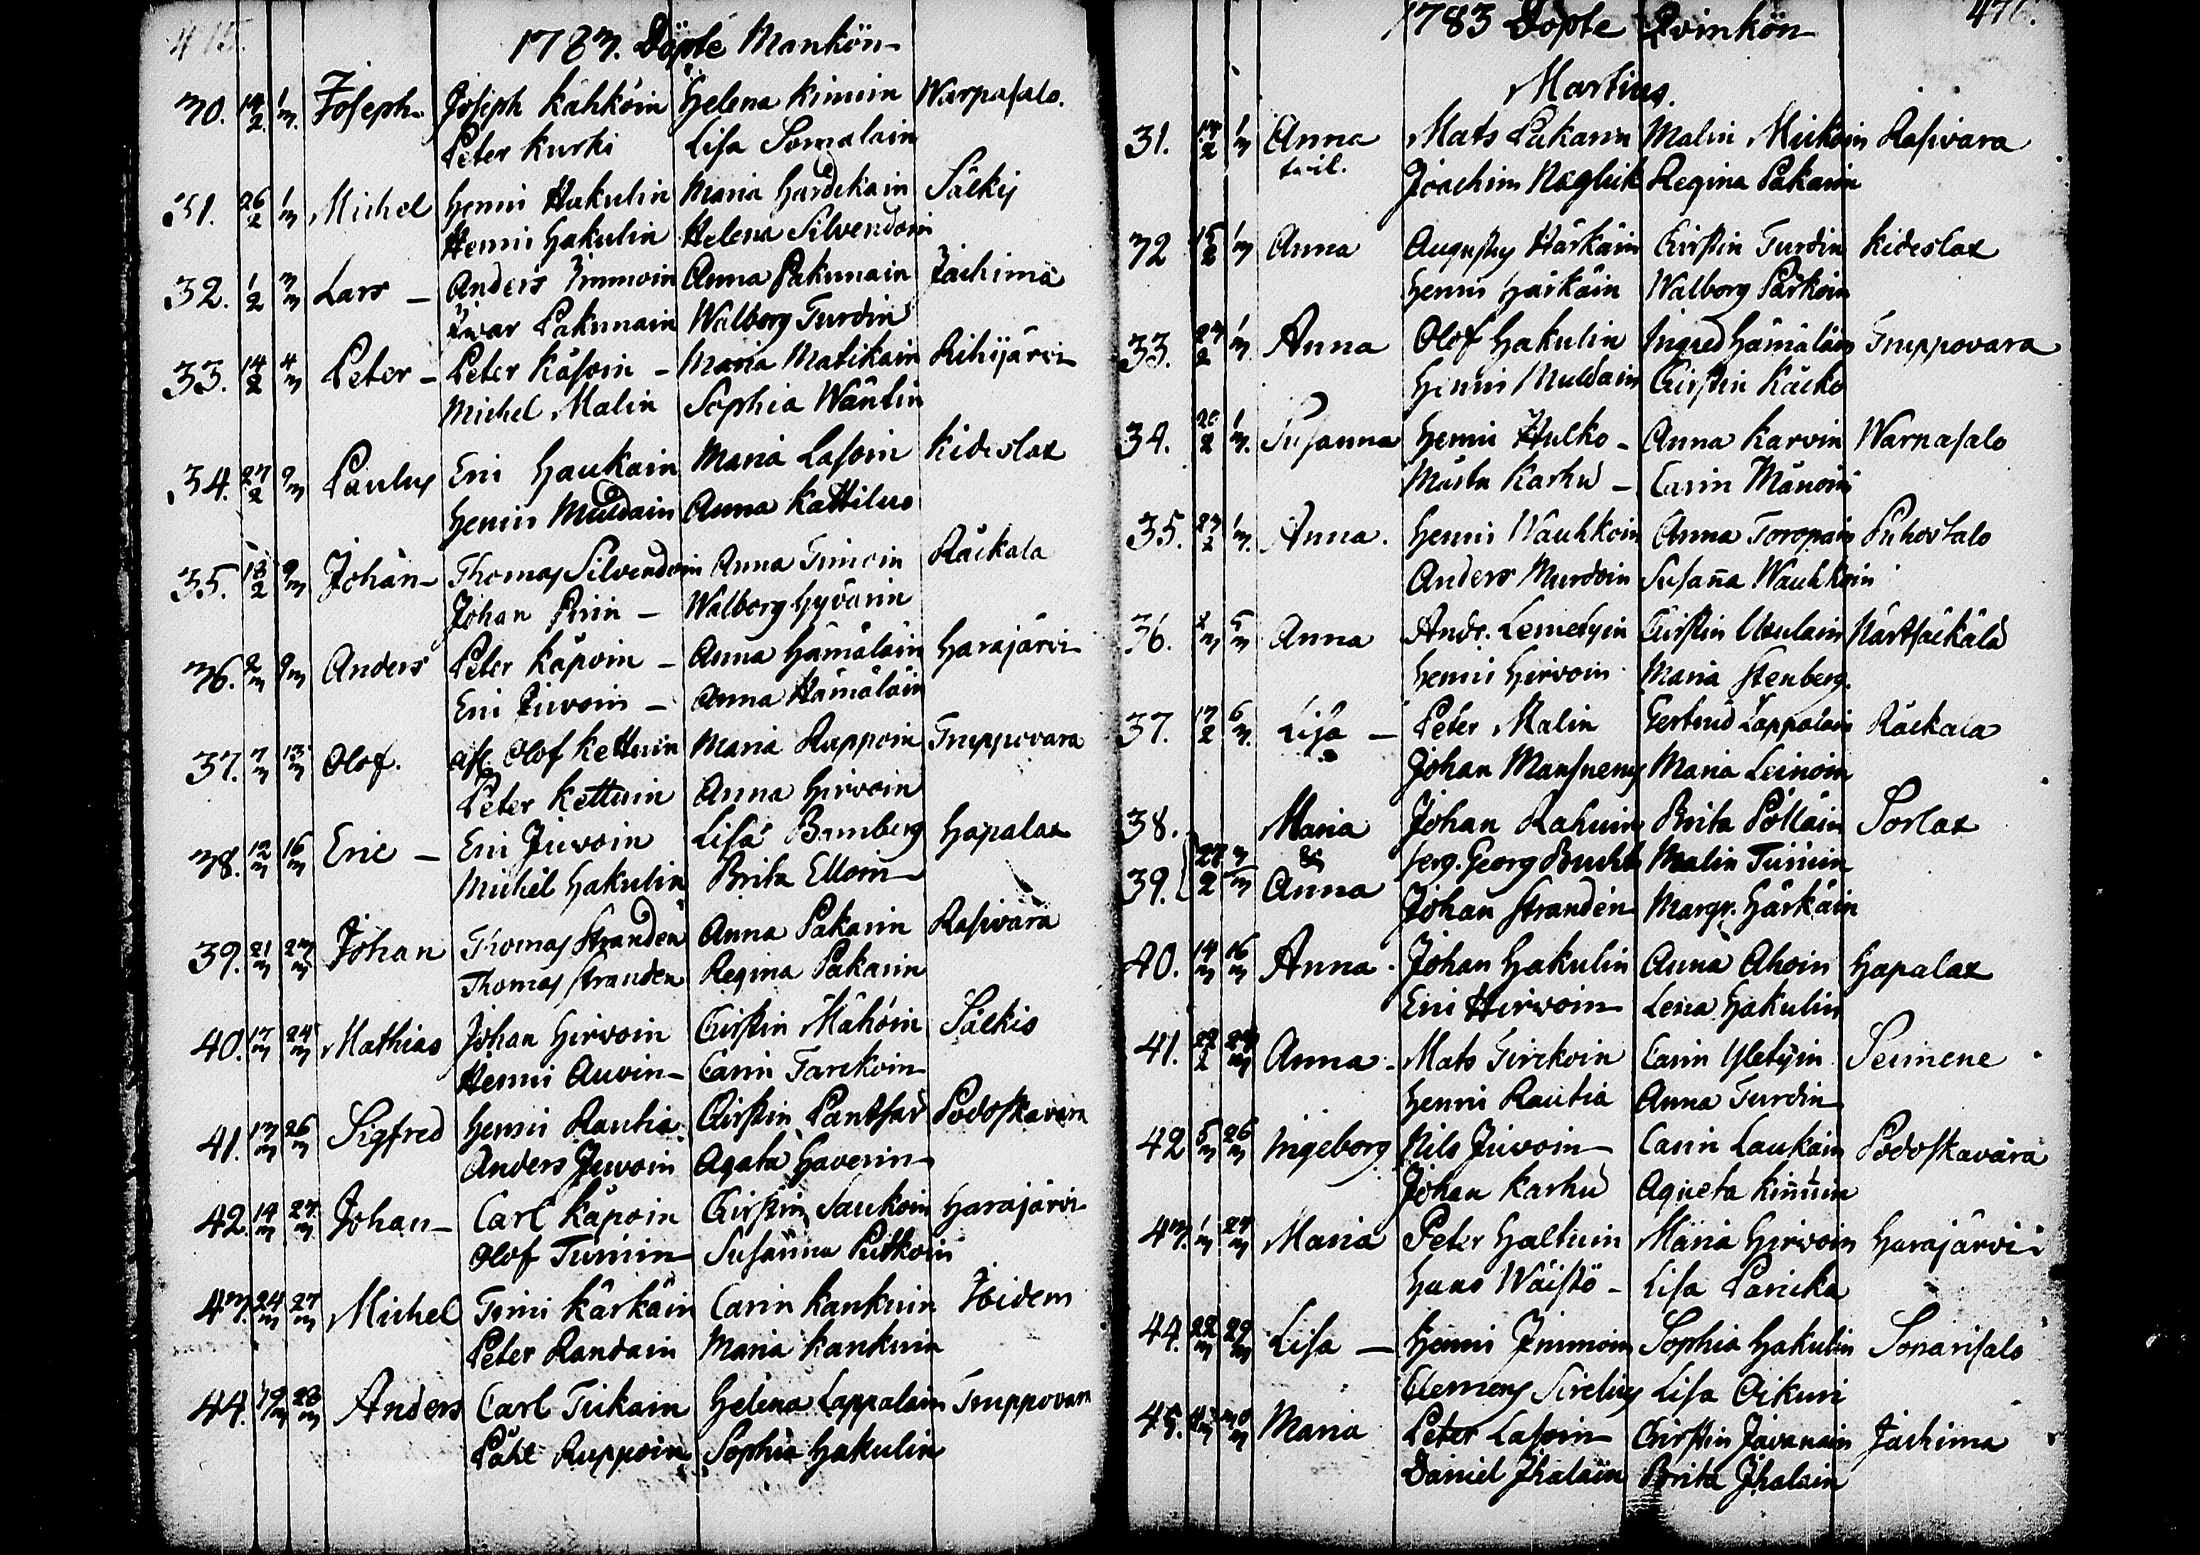 1783. Döpte Mankön
30. 14/2 1/m Joseph Joseph Kåhkoin Helena Kinnin Warpasalo.
Peter Kurki Lisa Somalain
31. 26/2 1/m Michel Henri Hakulin Maria Hardikain Sälkis
Henri Hakulin Helena Silvendoin
32. 1/2 3/m Lars Anders Immoin Anna Pakunain Jachima
Iwar Pakunain Walborg Turdin
33. 14/2 4/m Peter Peter Käsoin Maria Matikain Rihijärvi
Michel Malin Sophia Wäntin
34. 27/2 9/m Paulus Eric Haukain Maria Lasoin Kideslax
Henric Muldain Anna Kattilus
35. 18/2 9/m Johan Thomas Silvendoin Anna Timoin Räckala
Johan Pirin Walborg Hyvärin
36. 2/m 9/m Anders Peter Käpoin Anna Hämäläin Harajärvi
Eric Juvoin Anna Hämäläin
37. 7/m 13/m Olof. afl. Olof Kettuin Maria Ruppoin Truppovara
Peter Kettuin Anna Hirvoin
38. 12/m 16/m Eric Eric Juvoin Lisa Bamberg Hapalax
Michel Hakulin Brita Elloin
39. 21/m 23/m Johan Thomas Stranden Anna Pakarin Rasivara
Thomas Stranden Regina Pakarin
40. 17/m 24/m Mathias Johan Hirvoin Chirstin Mähöin Sälkis
Henri Auvin Carin Tarckoin
41. 13/m 26/m Sigfred Henri Rautia Chirstin Pantsar Podoskavara
Anders Juvoin Agata Haverin
42. 14/m 27/m Johan Carl Käpoin Chirstin Saukoin Harajärvi
Olof Turuin Susanna Putkoin
43. 24/m 27/m Michel Timi Kärkäin Carin Kankuin Ibidem
Peter Randain Maria Kankuin
44. 19/m 28/m Anders Carl Tiikain Helena Lappalain Truppovara
Påhl Ruppoin Sophia Hakulin
1783 Döpte Qvinkön 476.
Martius.
31. 14/2 1/m Anna Mats Pakarin Malin Mickoin Rasivara
tvil. Joachim Neglick Regina Pakarin
32 15/2 1/m Anna Augustus Härkäin Chirstin Turdin Kideslax
Henric Härkäin Walborg Pärkoin
33. 23/2 1/m Anna Olof Hakulin Ingred Hämäläin Truppovara
Henric Muldain Chirstin Käcko
34. 20/2 1/m. Susanna Henri Hulko Anna Karvin Warpasalo
Mårtn Karhu Carin Mänoin
35. 23/2 1/m. Anna. Henri Wauhkoin Anna Toropain Puhostalo
Anders Murdoin Susaña Wauhkoin
36. 2/m 5/m Anna Andr. Lemetyin Chirstin Ukulain Närtsäckälä
Henric Hirvoin Maria Stenberg.
37. 17/2 6/m. Lisa Peter Malin Gertrud Lappalain Räckala
Johan Mansnerus Maria Leinoin
38. Maria Johan Rahuin Brita Pölläin Sorlax
& serg. Georg Bucht Malin Turuin
39. 28/2 Anna Johan Stranden Margr. Härkäin
40. 14/m 16/m Anna. Johan Hakulin Anna Ahoin Hapalax
Eric Hirvoin Lena Hakulin
41. 22/2 24/m Anna Mats Tirckoin Carin Yletyin Suimene
Henri Rautia Anna Turdin
42 5/m 26/m Ingeborg Nils Juvoin Carin Laukain Podoskavara
Johan Karhu Agneta Kiñuin
43. 1/m 27/m Maria Peter Haltuin Maria Hirvoin Harajärvi
Hans Wäistö Lisa Paricka
44. 22/m 29/m Lisa Henri Immoin Sophia Hakulin Sonarisalo
Clemens Sirelius Lisa Oikuri
45. 30/m Maria Peter Lasoin Chirstin Javanain Jachima
Daniel Ihalain Brita Ihalain